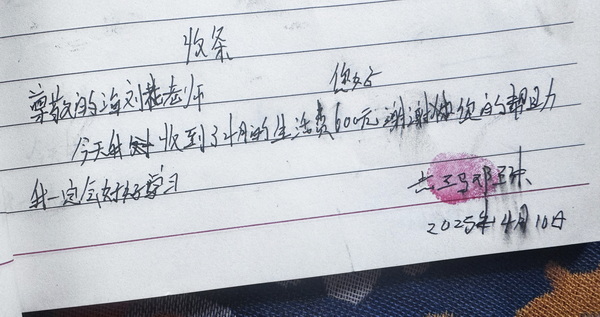 收条
尊敬的 刘 老师 您好
今天我 收到了4月的生活费600元谢谢 您的帮助
我一定会好好学习
2025年4月10日